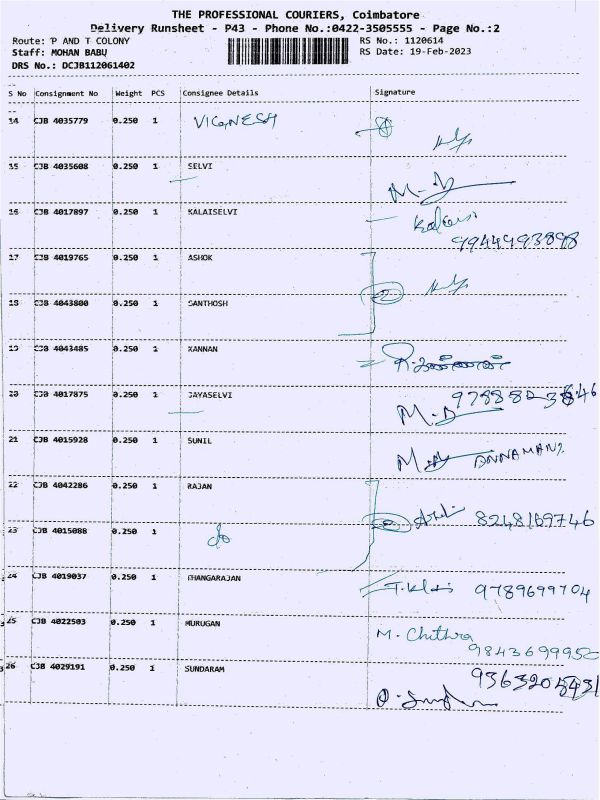 THE PROFESSIONAL COURIERS, Coimbatore
Delivery Runsheet - P43 - Phone No.:0422-3505555 - Page No.:2
Route: P AND T COLONY RS No.: 1120614
Staff: MOHAN BABU RS Date: 19-Feb-2023
DRS No.: DCJB112061402
S No Consignment No Weight PCS Consignee Details Signature
14 CJB 4035779 0.250 1 VIGNESH
15 CJB 4035608 0.250 1 SELVI
16 CJB 4017897 0.250 1 KALAISELVI
9944493898
17 CJB 4019765 0.250 1 ASHOK
18 CJB 4043800 0.250 1 SANTHOSH
19 CJB 4043485 0.250 1 KANNAN
20 CJB 4017875 0.250 1 JAYASELVI
21 CJB 4015928 0.250 1 SUNIL
22 CJB 4042286 0.250 1 RAJAN
8248169746
23 CJB 4015088 0.250 1 do
24 CJB 4019037 0.250 1 THANGARAJAN 9789699704
25 CJB 4022503 0.250 1 MURUGAN M. Chithra
26 CJB 4029191 0.250 1 SUNDARAM